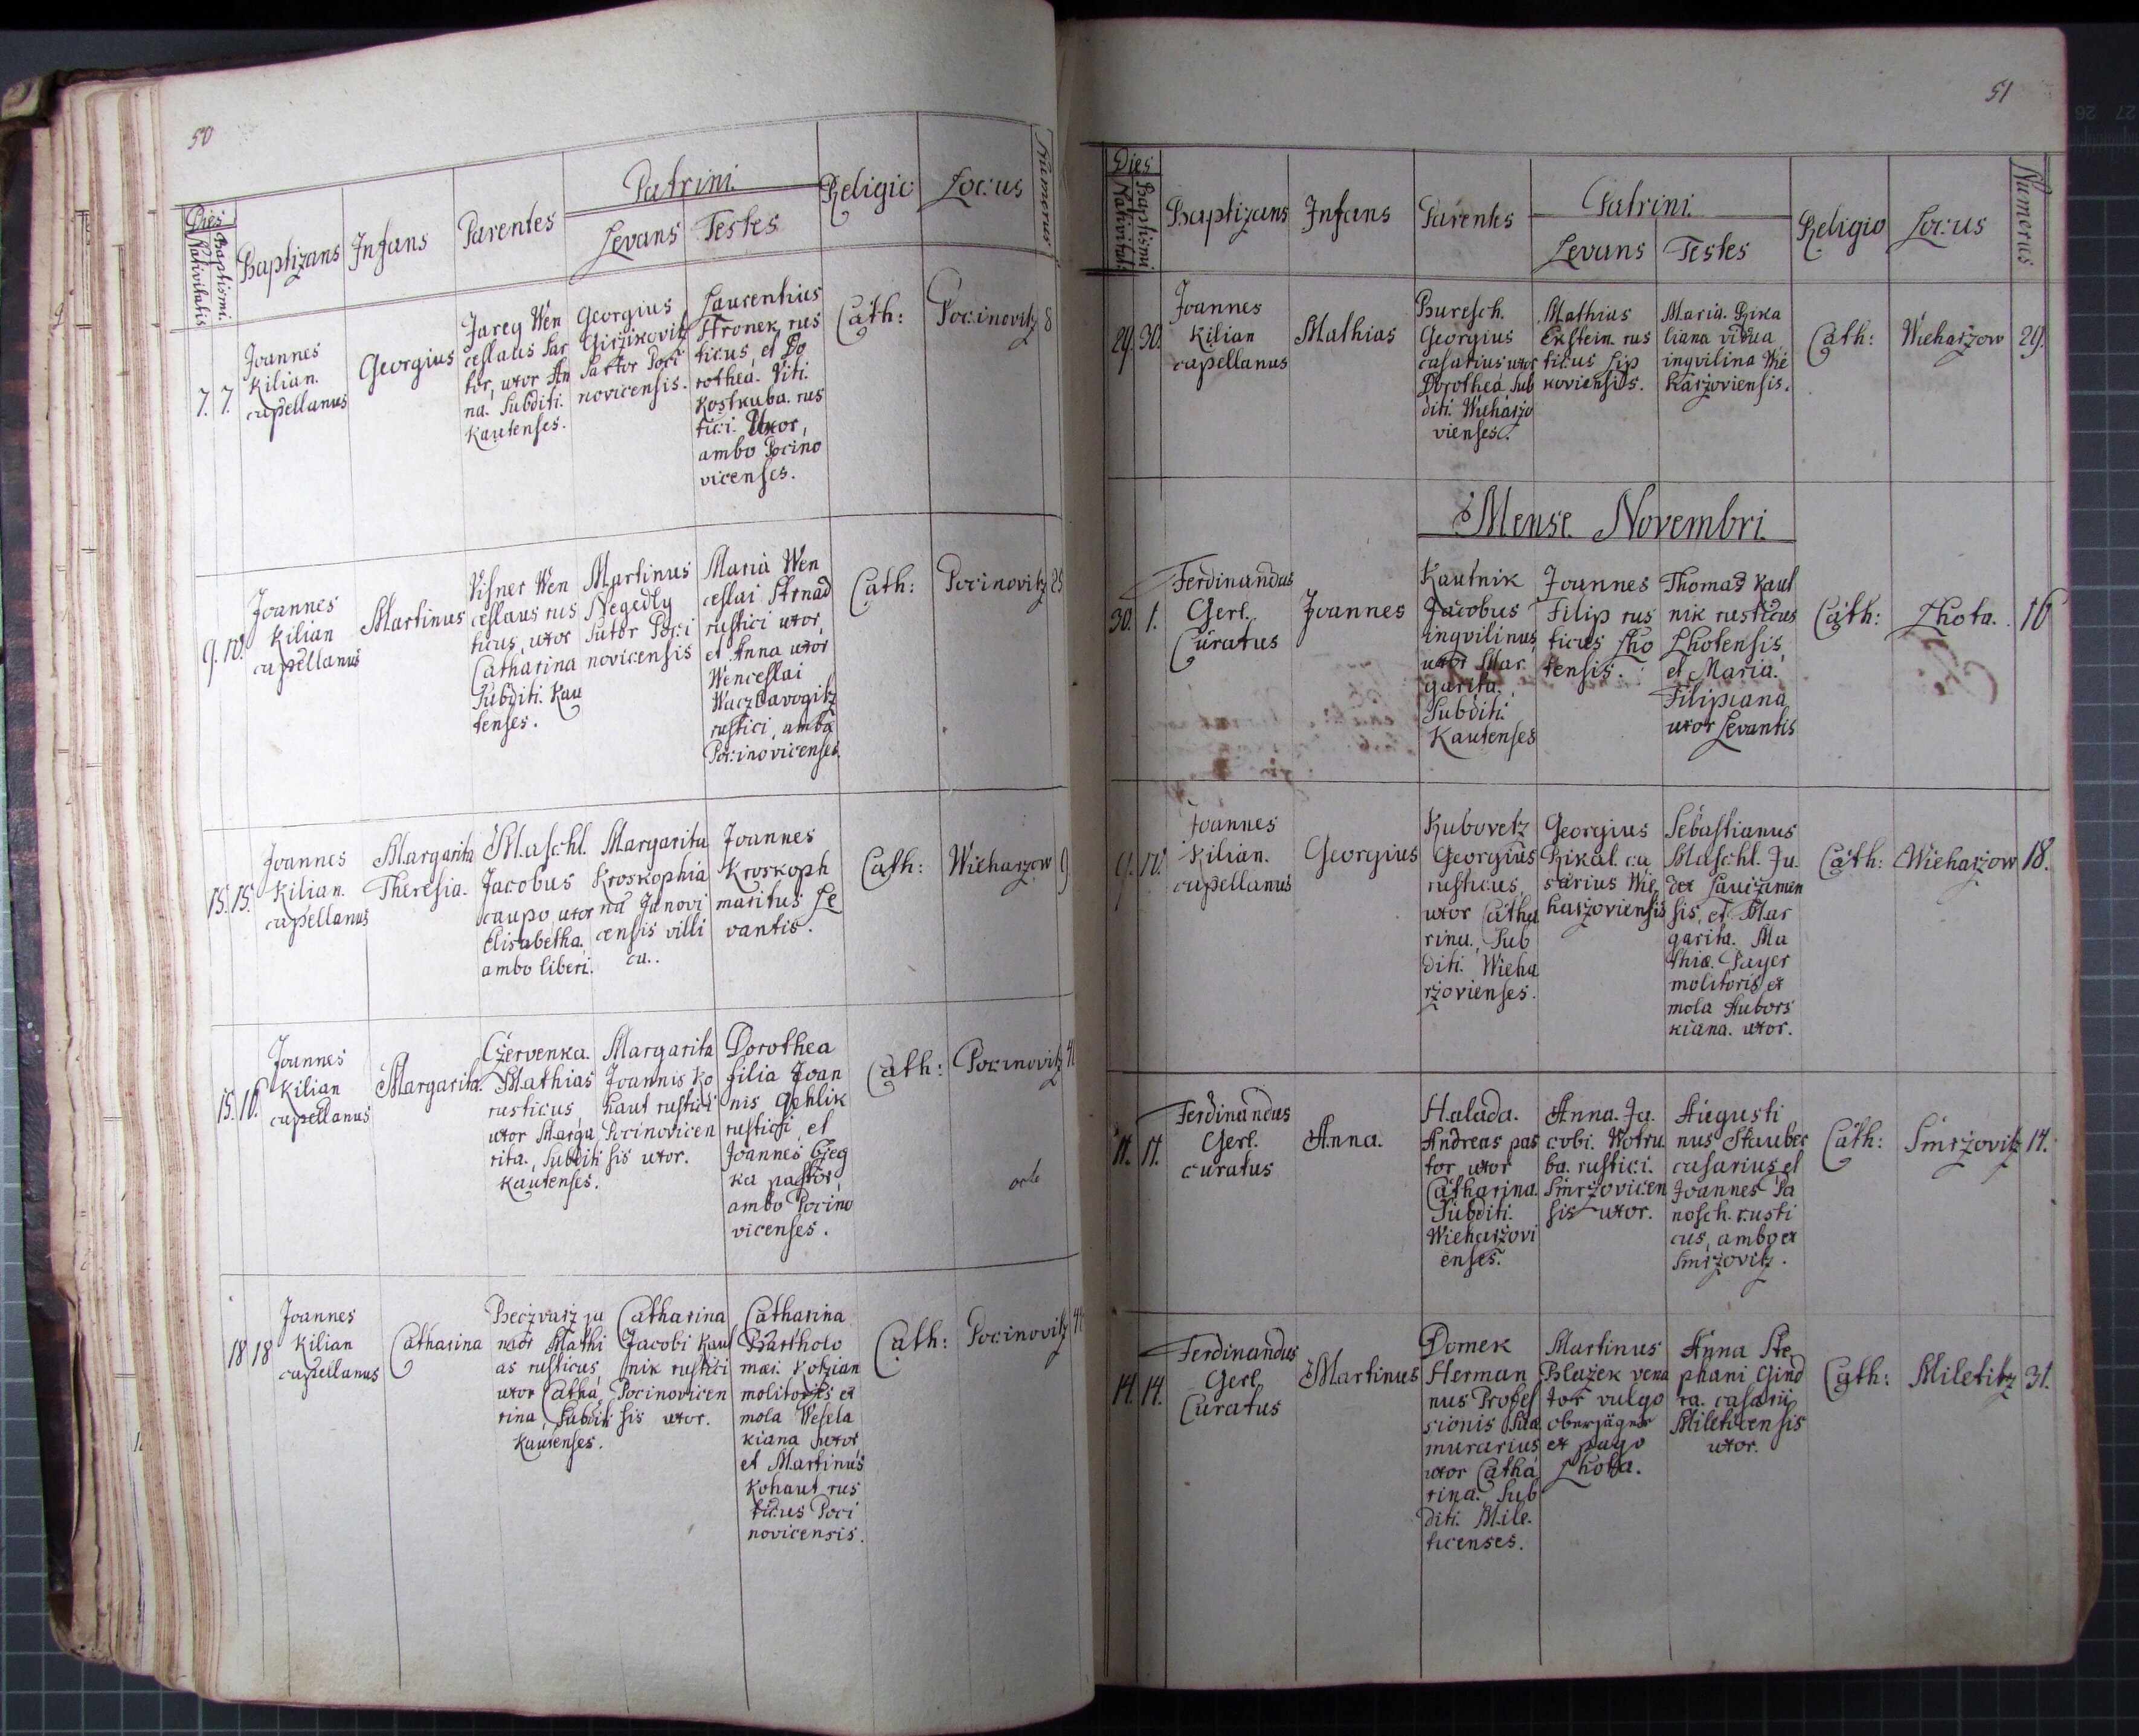 50
Dies
Nativitatis
Baptismi.
Baptizans
Infans
Parentes
Patrini.
Levans
Testes
Religio
Locus
Numerus
7. 7.
Joannes
Kilian.
capellanus
Georgius
Jareg Wen
ceslaus sar
tor, uxor An
na. Subditi.
Kautenses.
Georgius
Girzikovitz
Sartor Poci
novicensis.
Laurentius
Hronek rus
ticus, et Do
rothea. Viti.
Kostkuba. rus
tici. Uxor,
ambo Pocino
vicenses.
Cath:
Pocinovitz
8
9. 10.
Joannes
Kilian
capellanus
Martinus
Visner Wen
ceslaus rus
ticus, uxor
Catharina
Subditi. Kau
tenses.
Martinus
Negedly
Sutor Poci
novicensis
Maria Wen
ceslai Strnad
rustici uxor,
et Anna uxor
Wenceslai
Waczlavogitz
rustici, ambo
Pocinovicenses.
Cath:
Pocinovitz
15. 15.
Joannes
Kilian.
capellanus
Margarita
Theresia.
Maschl.
Jacobus
caupo, uxor
Elisabetha.
ambo liberi.
Margarita
Kroskophia
na Janovi
censis villi
ca..
Joannes
Kroskoph
maritus Le
vantis.
Cath:
Wieharzow
9
15. 16.
Joannes
Kilian
capellanus
Margarita.
Czervenka.
Mathias
rusticus,
uxor Marga
rita., Subditi
Kautenses.
Margarita
Joannis Ko
haut rustici
Pocinovicen
sis uxor.
Dorothea
filia Joan
nis Gehlik
rustici, et
Joannes Czeg
ka pastor,
ambo Pocino
vicenses.
Cath:
Pocinovitz
18 18
Joannes
Kilian
capellanus
Catharina
Beczvarz ju
nior Mathi
as rusticus,
uxor Catha
rina, Subditi
Kautenses.
Catharina
Jacobi Kaut
nik rustici
Pocinovicen
sis uxor.
Catharina
Bartholo
mæi Kotzian
molitoris ex
mola Wesela
kiana uxor,
et Martinus
Kohaut rus
ticus Poci
novicensis.
Cath:
Pocinovitz
51
Dies
Nativitatis
Baptismi
Baptizans
Infans
Parentes
Patrini.
Levans
Testes
Religio
Locus
Numerus
29. 30.
Joannes
Kilian
capellanus
Mathias
Buresch.
Georgius
casarius uxor
Dorothea Sub
diti. Wieharzo
vienses.
Mathias
Ekstein. rus
ticus Lip
koviensis.
Maria. Rzika
liana vidua
inqvilina Wie
harzoviensis.
Cath:
Wieharzow
29.
Mense. Novembri.
30. 1.
Ferdinandus
Gerl.
Curatus
Joannes
Kautnik
Jacobus
inqvilinus,
uxor Mar
garita.
Subditi.
Kautenses
Joannes
Filip rus
ticus Lho
tensis.
Thomas Kaut
nik rusticus
Lhotensis,
et Maria.
Filipiana
uxor Levantis
Cath:
Lhota.
16
9. 10.
Joannes
Kilian.
capellanus
Georgius
Kubovetz
Georgius
rusticus,
uxor Catha
rina., Sub
diti. Wieha
rzovienses.
Georgius
Rzikal. ca
sarius Wie
harzoviensis
Sebastianus
Maschl. Ju.
dex
sis, et Mar
garita. Ma
thiæ. Payer
molitoris ex
mola Hubors
kiana. uxor.
Cath:
Wieharzow
18.
11. 11.
Ferdinandus
Gerl.
curatus
Anna.
Halada.
Andreas pas
tor, uxor
Catharina.
Subditi.
Wieharzovi
enses.
Anna. Ja.
cobi. Wotru
ba. rustici.
Smrzovicen
sis uxor.
Augusti
nus Stauber
casarius, et
Joannes Ja
nosch. rusti
cus, ambo ex
Smrzovitz.
Cath:
Smrzovitz
14.
14. 14.
Ferdinandus
Gerl.
Curatus
Martinus
Domek
Herman
nus Profes
sionis suæ
murarius
uxor Catha
rina. Sub
diti. Mile.
ticenses.
Martinus
Blazek vena
tor vulgo
oberjäger
ex pago
Lhota.
Anna Ste
phani Gind
ra. casarii
Mileticensis
uxor.
Cath:
Miletitz
31.